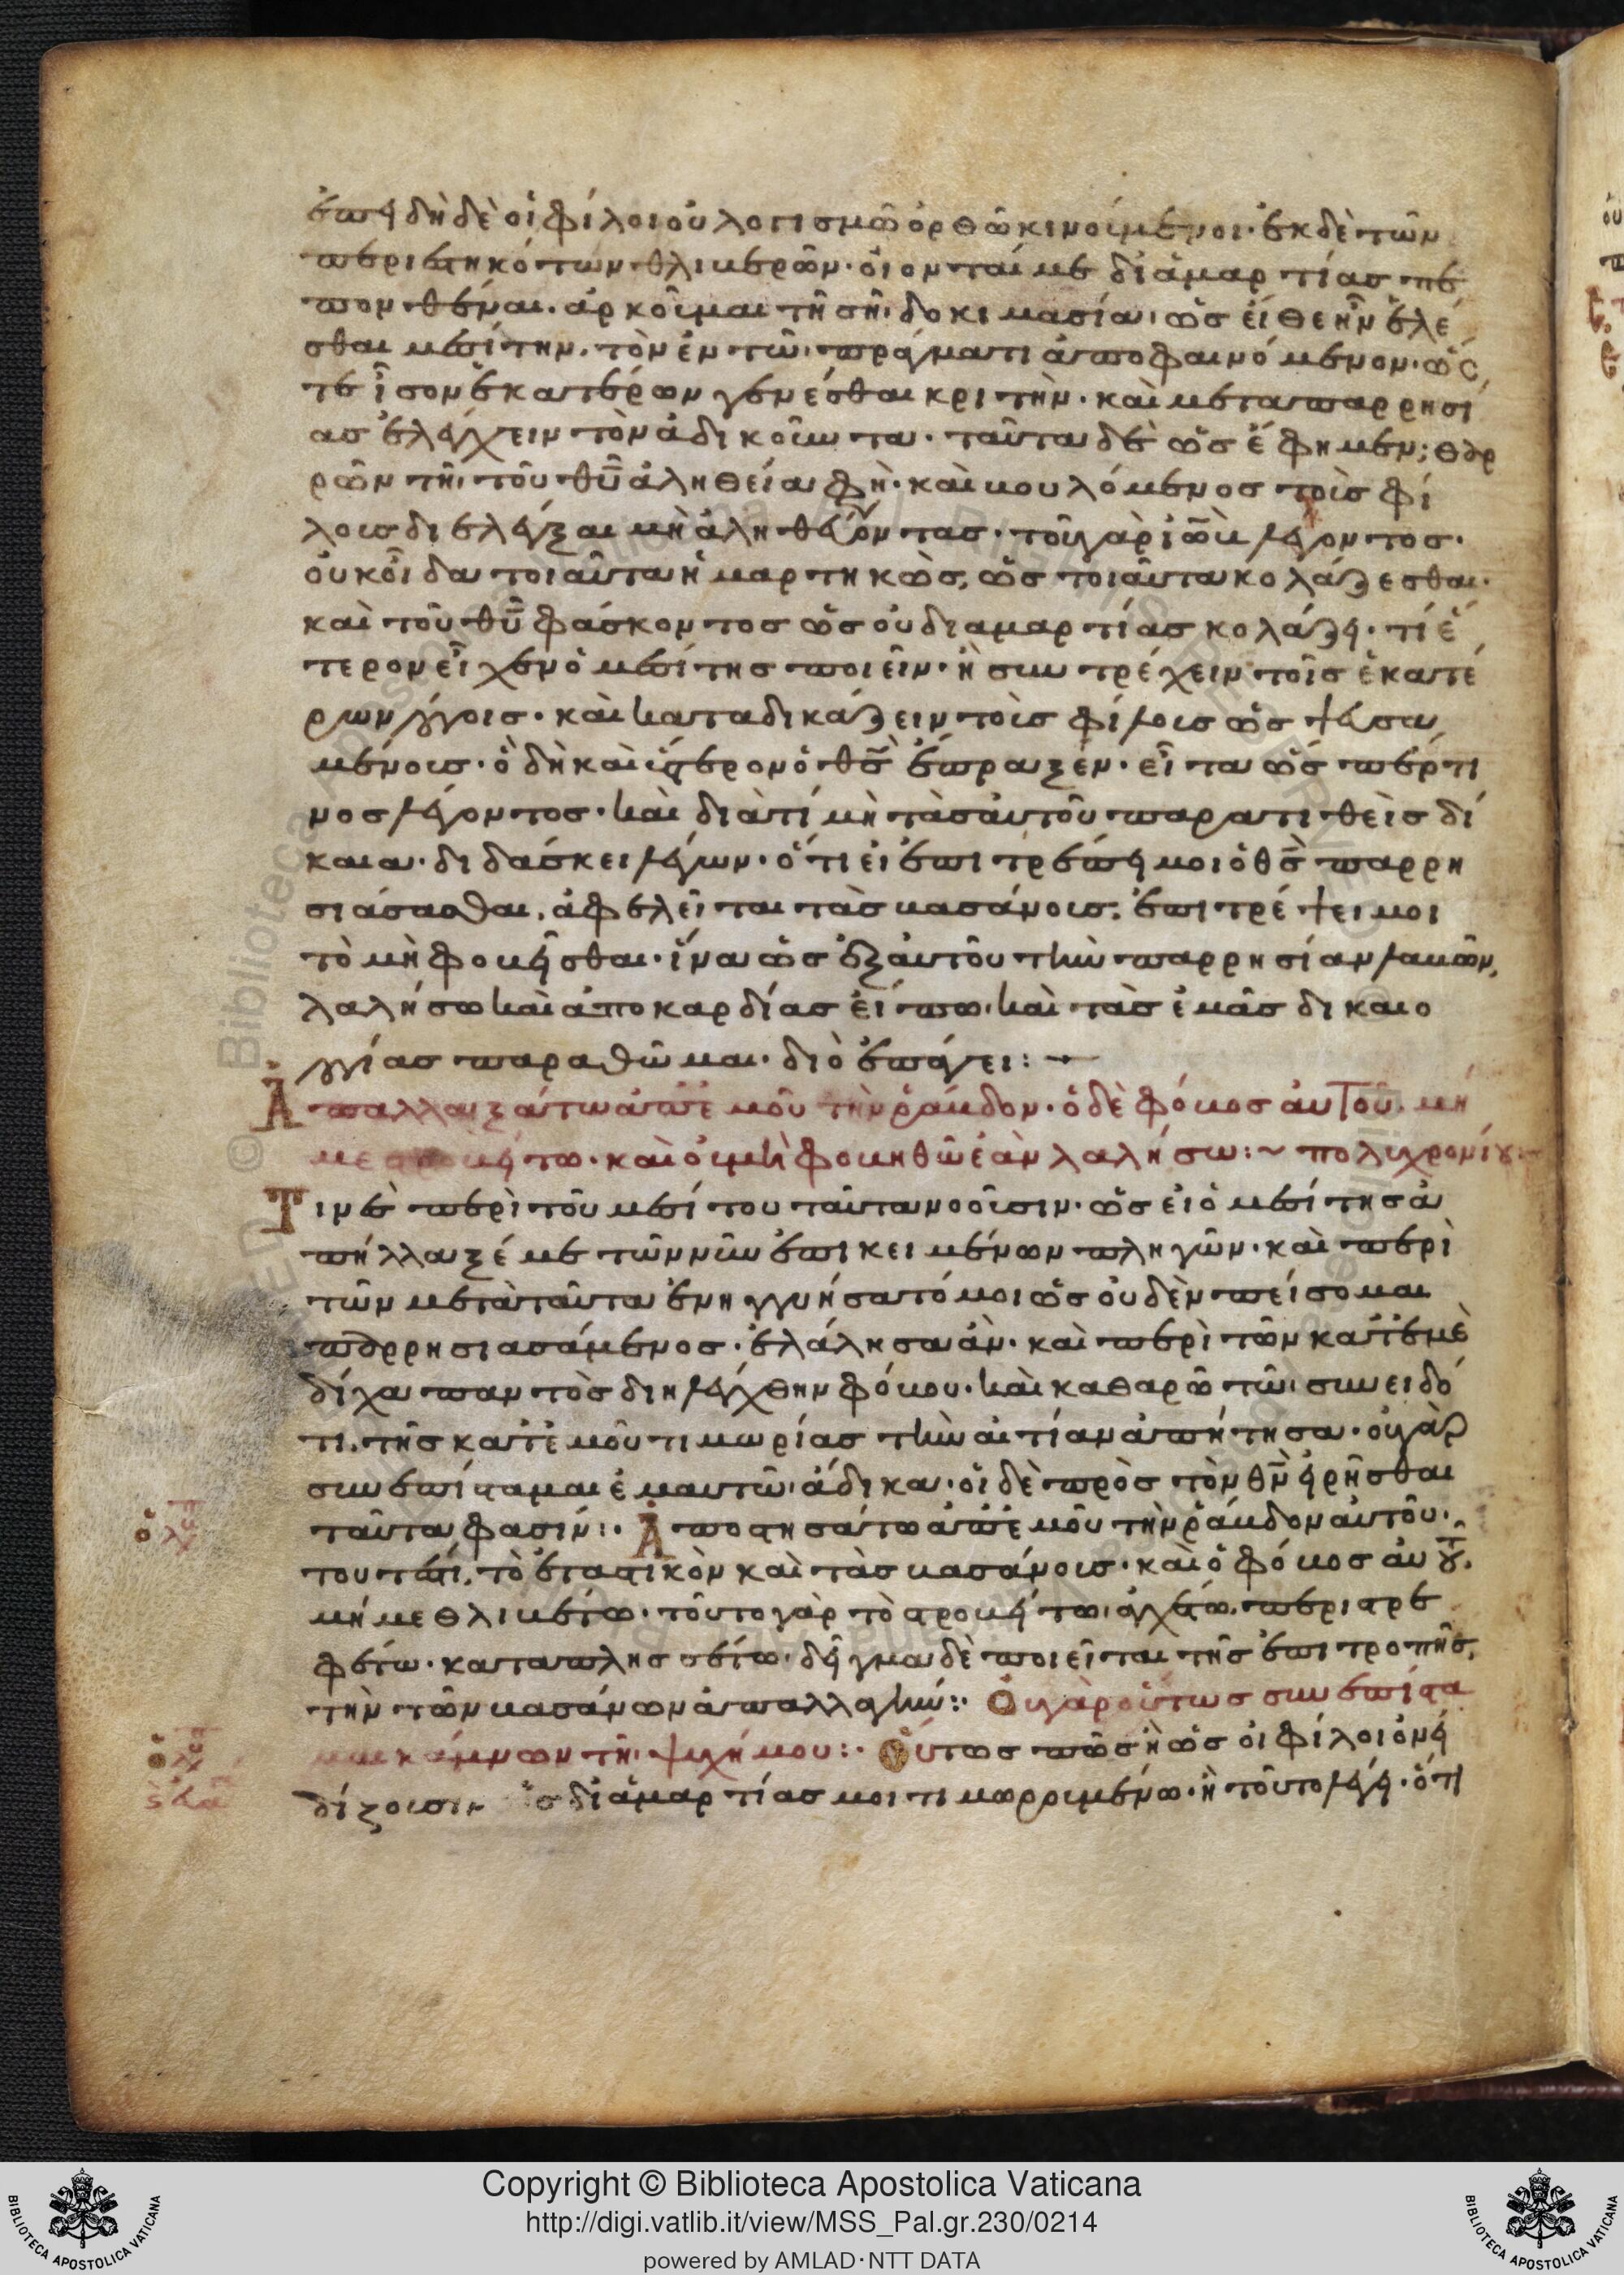 ἐπειδὴ δὲ οἱ φίλοι οὐ λογισμῶ ὀρθῶ κινούμενοι· ἐκ δὲ τῶν
περιεστηκότων θλιβερῶν· οἴονταί με δι ἁμαρτίας πε
πονθέναι. ἀρκοῦμαι τῆ σῆ δοκιμασία· ὡς εἴθε ἦν ἑλέ
σθαι μεσίτην. τὸν ἐν τῶ πράγματι ἀποφαινόμενον· ὥς
τε ἴσον ἑκατέρων γενέσθαι κριτὴν· καὶ μετὰ παρρησί
ας ἐλέγχειν τὸν ἀδικοῦντα· ταῦτα δὲ ὡς ἔφημεν; θαρ
ρῶν τῆ τοῦ θυ ἀληθεία φὴ· καὶ βουλόμενος τοὺς φί
λους διελέγξαι μὴ ἀληθεύοντας· τοῦ γὰρ ἰὼβ λέγοντος·
οὐκ οἶδα τοιαῦτα ἡμαρτηκὼς, ὡς τοιαῦτα κολάζεσθαι·
καὶ τοῦ θυ φάσκοντος ὡς οὐ δι αμαρτίας κολάζει· τί ἕ
τερον εἶχεν ὁ μεσίτης ποιεῖν· ἢ συντρέχειν τοῖς ἑκατέ
ρων λόγοις· καὶ καταδικάζειν τοὺς φίλους ὡς ψευσα
μένους· ὃ δὴ καὶ ὕστερον ὁ θς ἔπραξεν· εἶτα ὥς περ τι
νος λέγοντος· καὶ διὰ τί μὴ τὰς αὐτοῦ παρατιθεὶς δί
καια· διδάσκει λέγων· ὅτι εἰ ἐπιτρέπει μοι ὁ θς παρρη
σιάσασθαι, ἀφελεῖται τὰς βασάνους, ἐπιτρέψει μοι
τὸ μὴ φοβεῖσθαι· ἵνα ὡς ἐξ αὐτοῦ τὴν παρρησίαν λαβὼν,
λαλήσω καὶ ἀπο καρδίας εἴπω· καὶ τὰς ἐμὰς δικαιο
λογίας παραθῶμαι· διὸ ἐπάγει:
Ἀπαλλαξάτω ἀπ' ἐμοῦ τὴν ῥάβδον· ὁ δὲ φόβος αὐτοῦ. μή
με στροβείτω· καὶ οὐ μὴ φοβηθῶ ἐὰν λαλήσω:~ πολυχρονίου:
Τινὲς περὶ τοῦ μεσίτου ταῦτα νοοῦσιν· ὡς εἰ ὁ μεσίτης ἀ
πήλλαξέ με τῶν νῦν ἐπικειμένων πληγῶν· καὶ περὶ
τῶν μετὰ ταῦτα ἐνηγγυήσατό μοι ὡς οὐδὲν πείσομαι
παρρησιασάμενος· ἐλάλησα ἂν· καὶ περὶ τῶν κατ' ἐμὲ
δίχα παντὸς διηλέγχθην φόβου· καὶ καθαρῶ τῶ συνειδό
τι. τῆς κατ' ἐμοῦ τιμωρίας τὴν αἰτίαν ἀπήτησα· οὐ γὰρ
συνεπίσταμαι ἐμαυτῶ ἄδικα· οἱ δὲ πρὸς τὸν θν εἰρῆσθαι
ταῦτα φασίν:· Ἀποστησάτω ἀπ' ἐμοῦ τὴν ῥάβδον αὐτοῦ·
τουτέστι, τὸ ἐταστικὸν καὶ τὰς βασάνους· καὶ ὁ φόβος αὐτοῦ.
μή με θλιβέτω· τοῦτο γὰρ τὸ στροβείτω, ἀγχέτω, περιστρε
φέτω· καταπλησσέτω· δεῖγμα δὲ ποιεῖται τῆς ἐπιτροπῆς,
τὴν τῶν βασάνων ἀπαλλαγὴν:· Οὐ γὰρ οὕτως συνεπίστα
μαι κάμνων τῆ ψυχή μου:· Οὕτως πῶς ἢ ὡς οἱ φίλοι ὀνει
δίζουσιν ὡς δι ἁμαρτίας μοι τιμωρουμένω· ἢ τοῦτο λέγει· ὅτι